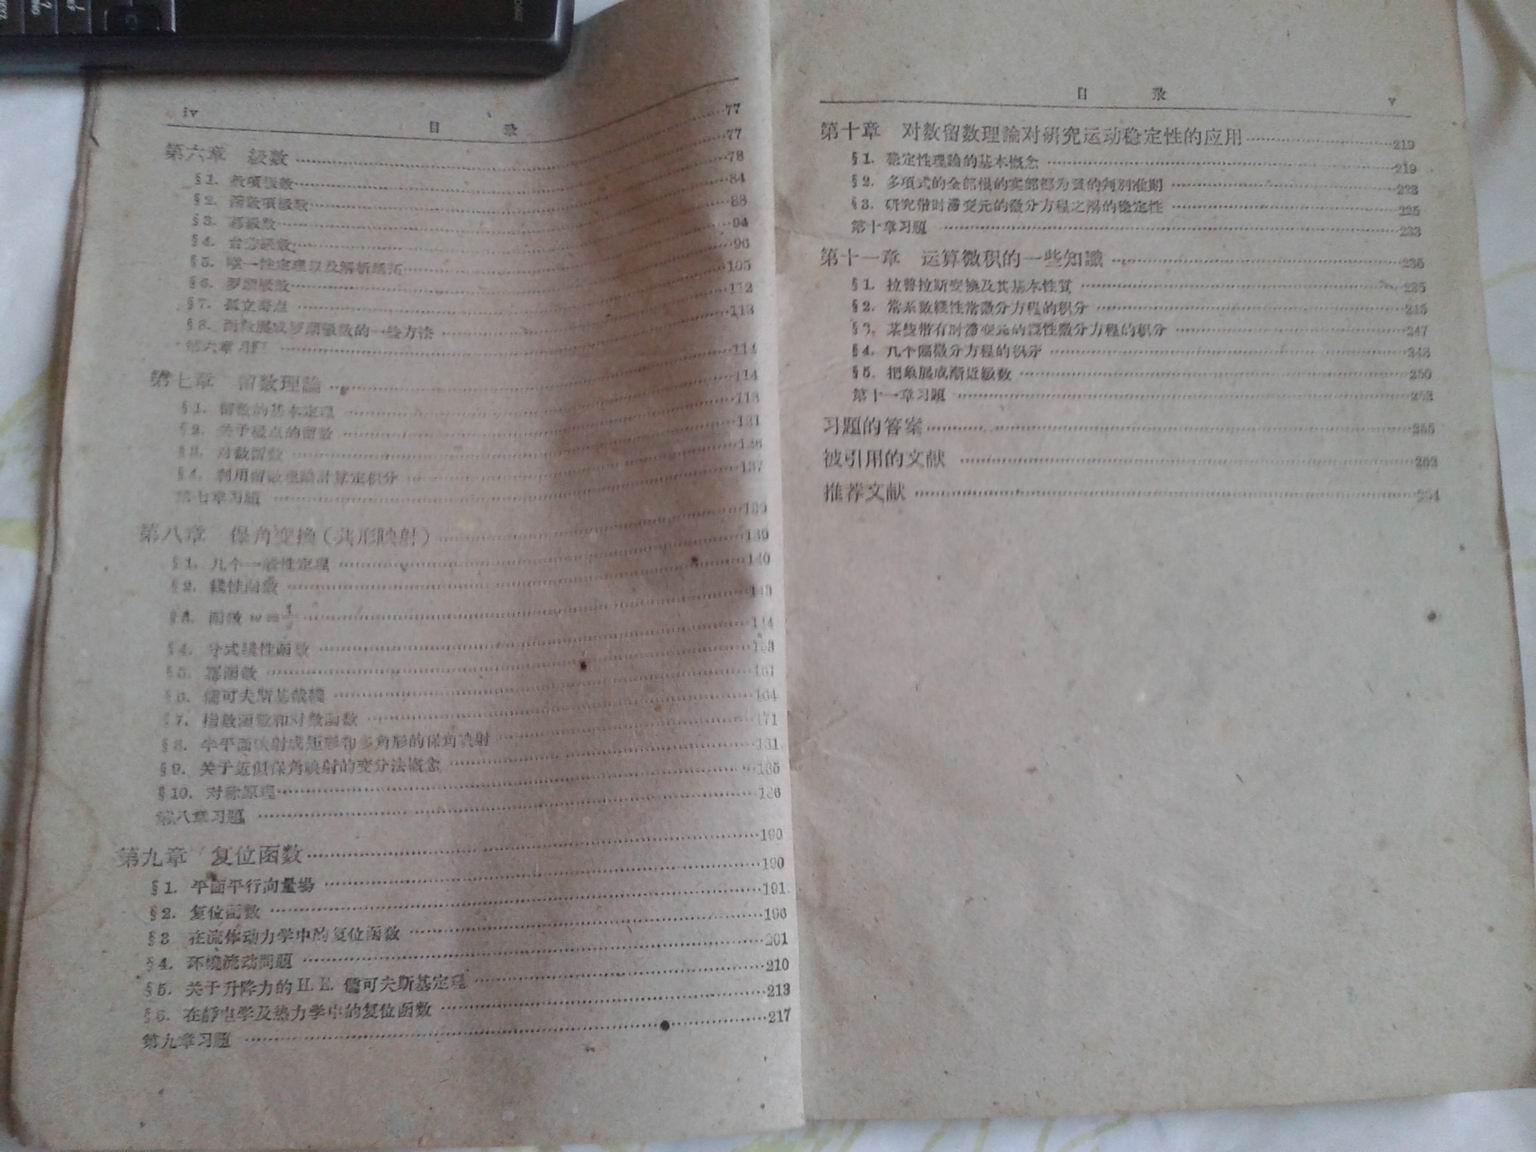 iv 目 录
第六章 級数 77
§1. 数項級数 77
§2. 函数項級数 78
§3. 冪級数 84
§4. 台劳級数 88
§5. 唯一性定理以及解析延拓 94
§6. 罗朗級数 96
§7. 孤立奇点 105
§8. 函数展成罗朗級数的一些方法 112
第六章习題 113
第七章 留数理論 114
§1. 留数的基本定理 114
§2. 关于极点的留数 118
§3. 对数留数 121
§4. 利用留数理論計算定积分 126
第七章习題 137
第八章 保角变換(共形映射) 139
§1. 几个一般性定理 139
§2. 綫性函数 140
§3. 函数 143
§4. 分式綫性函数 144
§5. 冪函数
§6. 儒可夫斯基截綫 161
§7. 指数函数和对数函数 164
§8. 半平面映射成矩形和多角形的保角映射 171
§9. 关于近似保角映射的变分法概念 181
§10. 对称原理 185
第八章习題 186
第九章 复位函数 190
§1. 平面平行向量場 190
§2. 复位函数 191
§3 在流体动力学中的复位函数 196
§4. 环繞流动問題 201
§5. 关于升降力的 H. E. 儒可夫斯基定理 210
§6. 在静电学及热力学中的复位函数 213
第九章习題 217
目 录 v
第十章 对数留数理論对研究运动稳定性的应用 219
§1. 稳定性理論的基本概念 219
§2. 多項式的全部根的实部都为負的判别准則 223
§3. 研究带时滞变元的微分方程之解的稳定性 225
第十章习題 233
第十一章 运算微积的一些知識 235
§1. 拉普拉斯变换及其基本性質 235
§2. 常系数綫性常微分方程的积分 245
§3. 某些带有时滞变元的綫性微分方程的积分 247
§4. 几个偏微分方程的积分 248
§5. 把象展成漸近級数 250
第十一章习題 253
习題的答案 255
被引用的文献 263
推荐文献 264